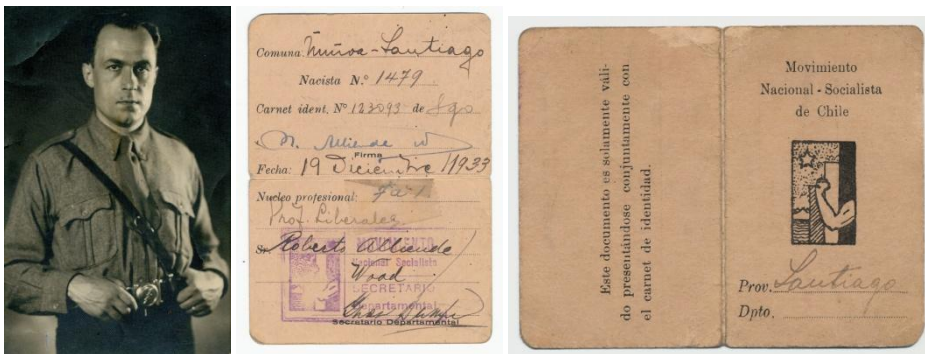 Comuna: Ñuñoa-Santiago
Nacista N.º 1479
Carnet ident. Nº 123093 de Stgo
Firma
Fecha: 19 Diciembre /1933
Nucleo profesional:
Prof. Liberales
Sr. Roberto Alliende
MOVIMIENTO
Nacional Socialista
Wood
SECRETARIO
Departamental
Secretario Departamental
Este documento es solamente váli-
do presentándose conjuntamente con
el carnet de identidad.
Movimiento
Nacional - Socialista
de Chile
Prov. Santiago
Dpto.